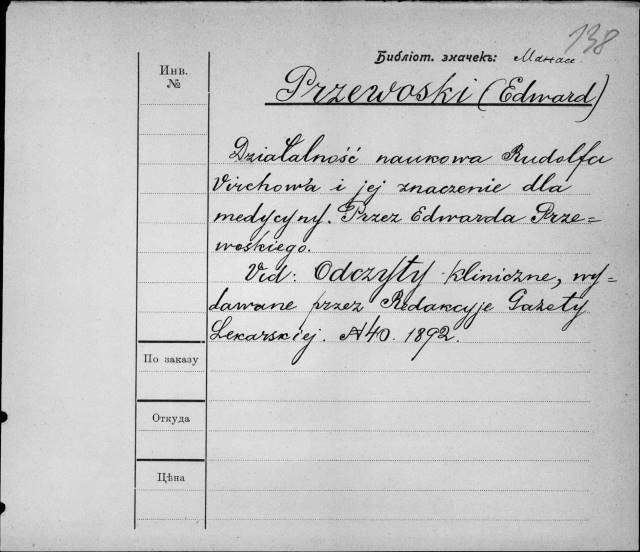 138
Библіот. значекъ: Манасс.
Инв.
№
Przewoski (Edward)
Działalność naukowa Rudolfa
Virchow'a i jej znaczenie dla
medycyny. Przez Edwarda Prze=
woskiego.
Vid: Odczyty kliniczne, wy=
dawane przez Redakcyje Gazety
Lekarskiej. № 40. 1892.
По заказу
Откуда
Цѣна